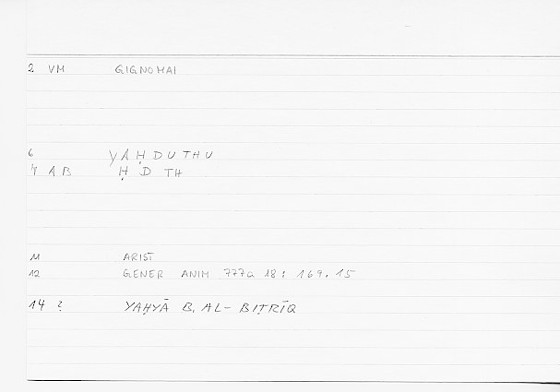 2 VM GIGNOMAI
6 YAḤDUTHU
7 AB Ḥ D TH
11 ARIST
12 GENER ANIM 777a 18 : 169.15
14 ? YAḤYĀ B. AL-BIṬRĪQ